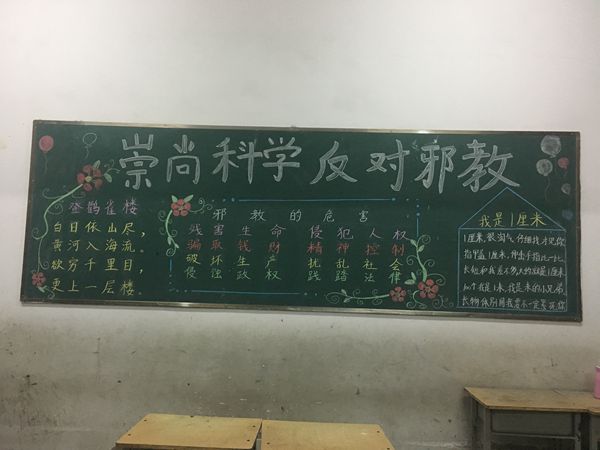 崇尚科学反对邪教
登鹳雀楼
白日依山尽，
黄河入海流。
欲穷千里目，
更上一层楼。
邪教的危害
残害生命 侵犯人权
骗取钱财 精神控制
破坏生产 扰乱社会
侵蚀政权 践踏法律
我是1厘米
1厘米，很淘气，仔细找才见你
指甲盖1厘米，伸出手指比一比
1厘米
我是1米，我是米的小兄弟